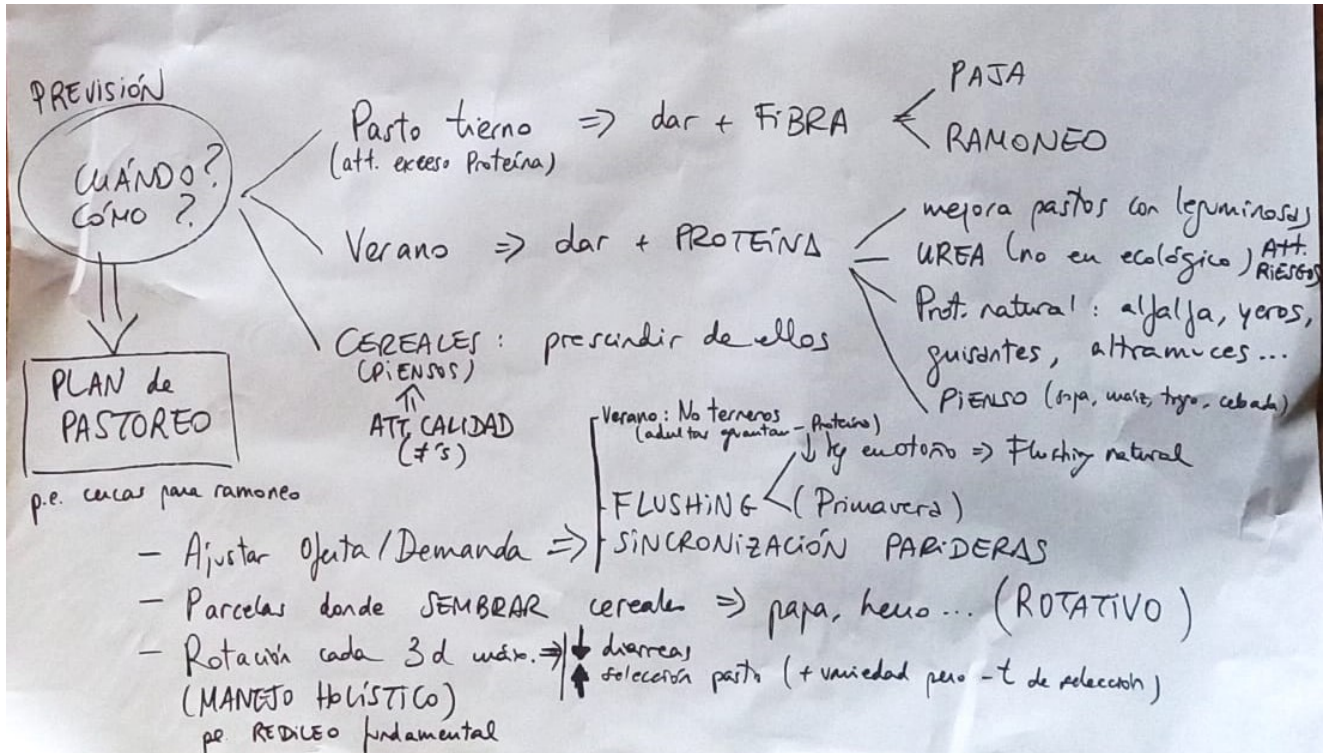 PREVISIÓN
CUÁNDO?
CÓMO?
PLAN de
PASTOREO
p.e. cercas para ramoneo
Pasto tierno => dar + FIBRA
(att. exceso Proteína)
PAJA
RAMONEO
Verano => dar + PROTEÍNA
mejora pastos con leguminosas
UREA (no en ecológico) Att.
RIESGOS
Prot. natural: alfalfa, yeros,
guisantes, altramuces...
PIENSO (soja, maíz, trigo, cebada)
CEREALES: prescindir de ellos
(PIENSOS)
⇑
ATT. CALIDAD
(≠'s)
- Ajustar Oferta/Demanda =>
Verano: No terneros
(adultas aguantan - Proteína)
FLUSHING
↓ kg en otoño => Flushing natural
(Primavera)
SINCRONIZACIÓN PARIDERAS
- Parcelas donde SEMBRAR cereales => paja, heno... (ROTATIVO)
- Rotación cada 3d máx. => ↓ diarreas
(MANEJO HOLÍSTICO) ↑ selección pasto (+ variedad pero -t de selección)
pe REDILEO fundamental